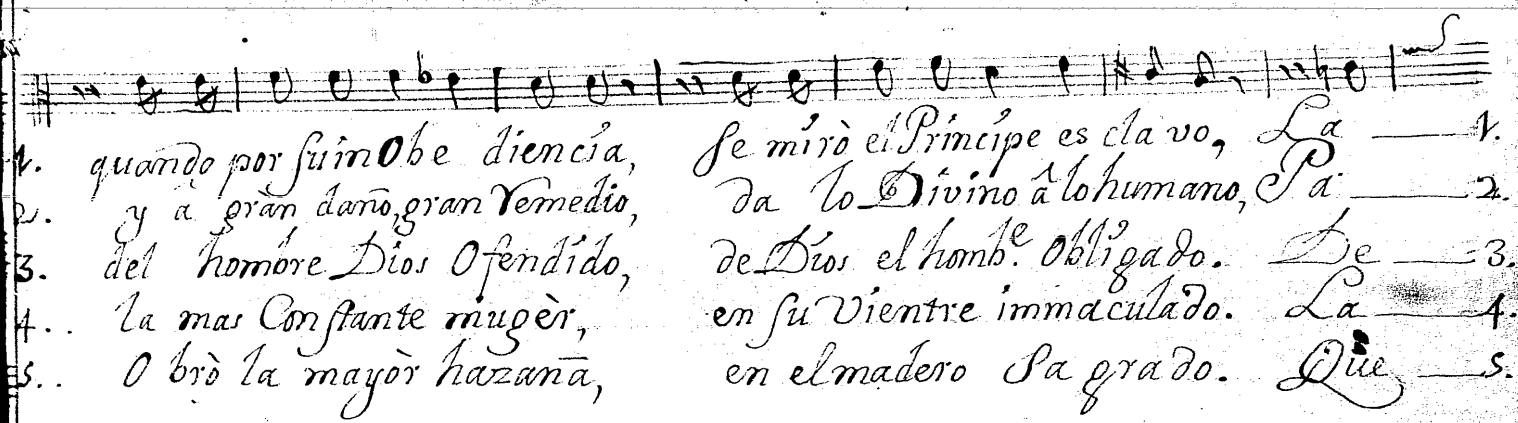 1. quando por su inObe diencia, se mirò el Principe es cla vo, La 1.
2. y a gran daño, gran remedio, da lo Divino â lo humano, Pa 2.
3. del hombre Dios Ofendido, de Dios el hombe. Obligado. De 3.
4.. la mas Constante mugèr, en su Vientre immaculado. La 4.
5.. O brò la mayòr hazaña, en el madero Sa grado. Que 5.